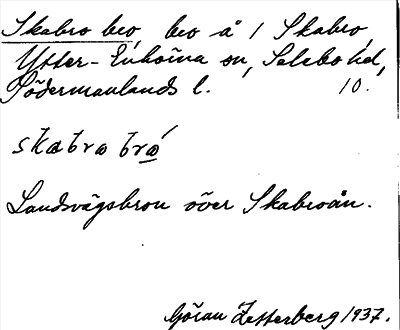 Skabro bro, bro å 1 Skabro,
Ytter-Enhörna sn, Selebo hd,
Södermanlands l. 10.
skabra bra
Landsvägsbron över Skabroån.
Göran Zetterberg 1937.